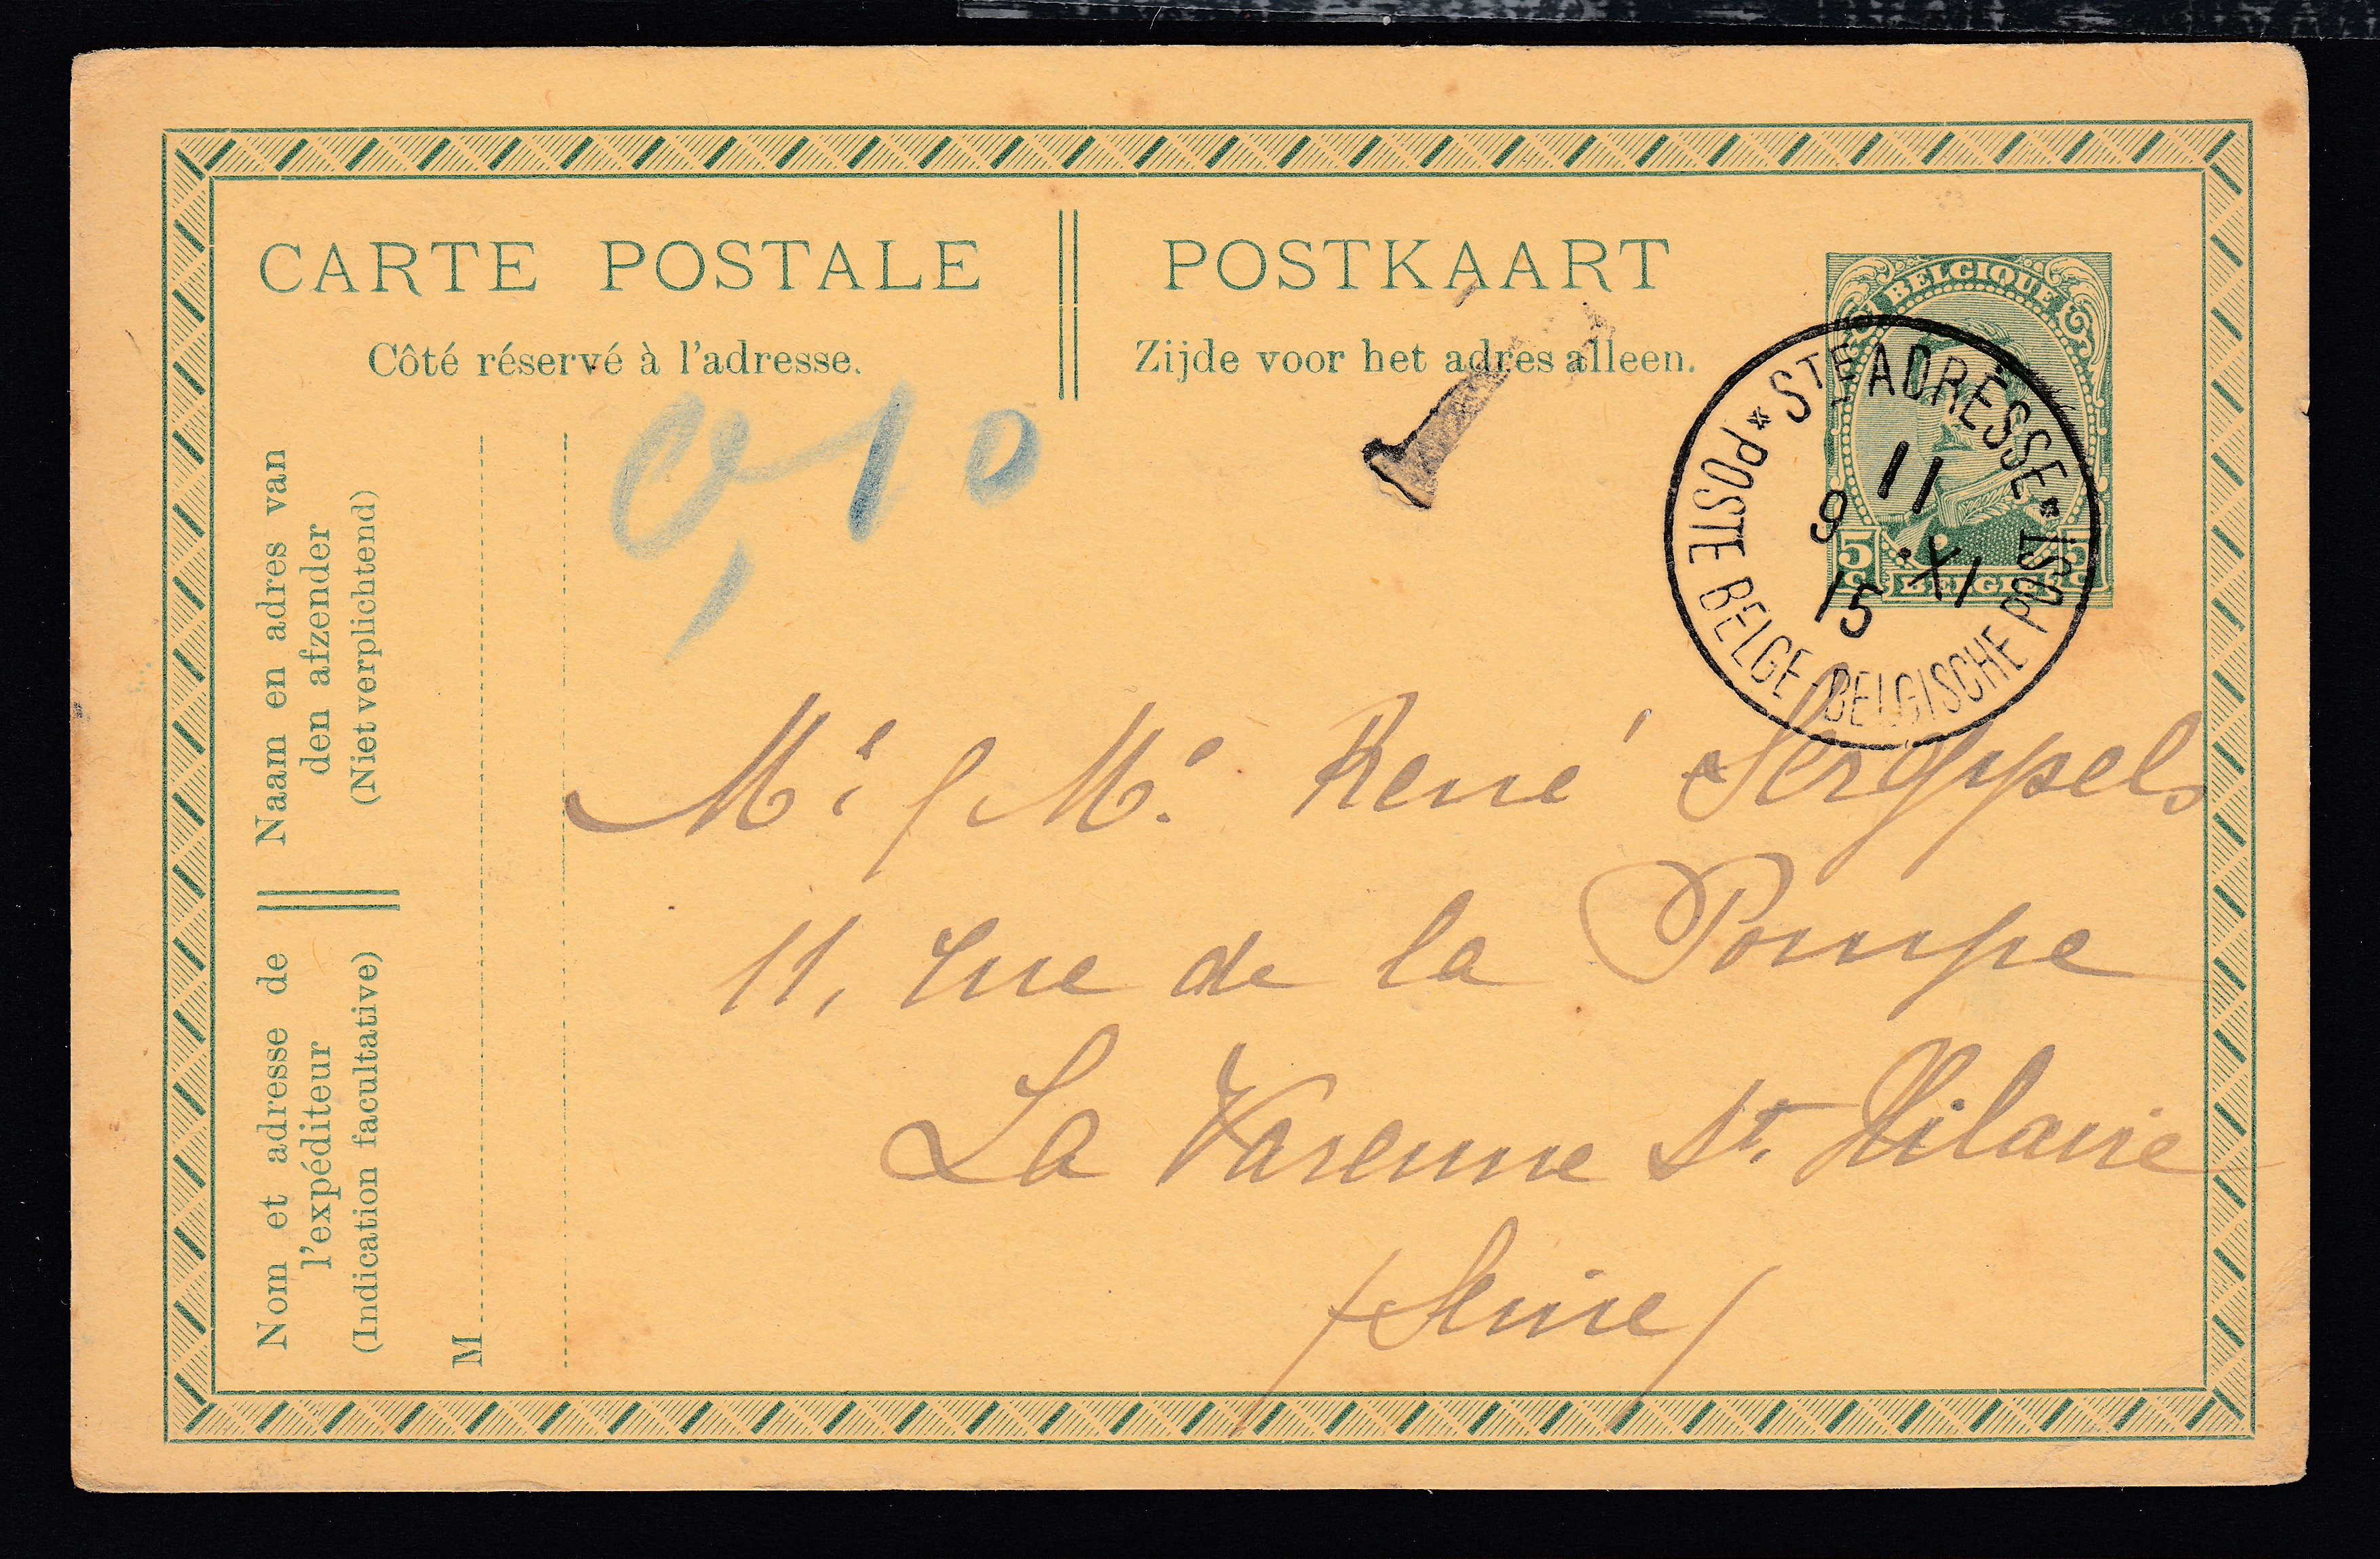 CARTE POSTALE
Côté réservé à l'adresse.
POSTKAART
Zijde voor het adres alleen.
BELGIQUE
5 5
C C
BELGIË
* STE ADRESSE *
POSTE BELGE - BELGISCHE POST
11
9 XI
15
T
0,10
Naam en adres van
den afzender
(Niet verplichtend)
Nom et adresse de
l'expéditeur
(Indication facultative)
M
René
11, rue de la Pompe
La Varenne St. Hilaire
(Seine)